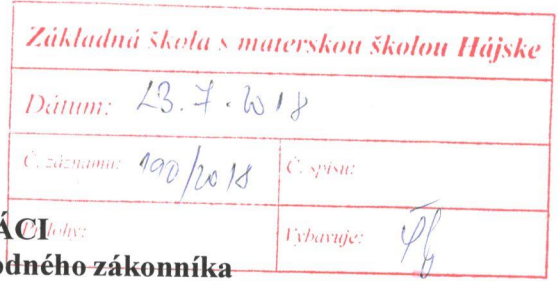 Základná škola s materskou školou Hájske
Dátum: 23.7.2018
Č. záznamu: 190/2018 Č. spisu:
ÁCI Prílohy: Vybavuje:
odného zákonníka